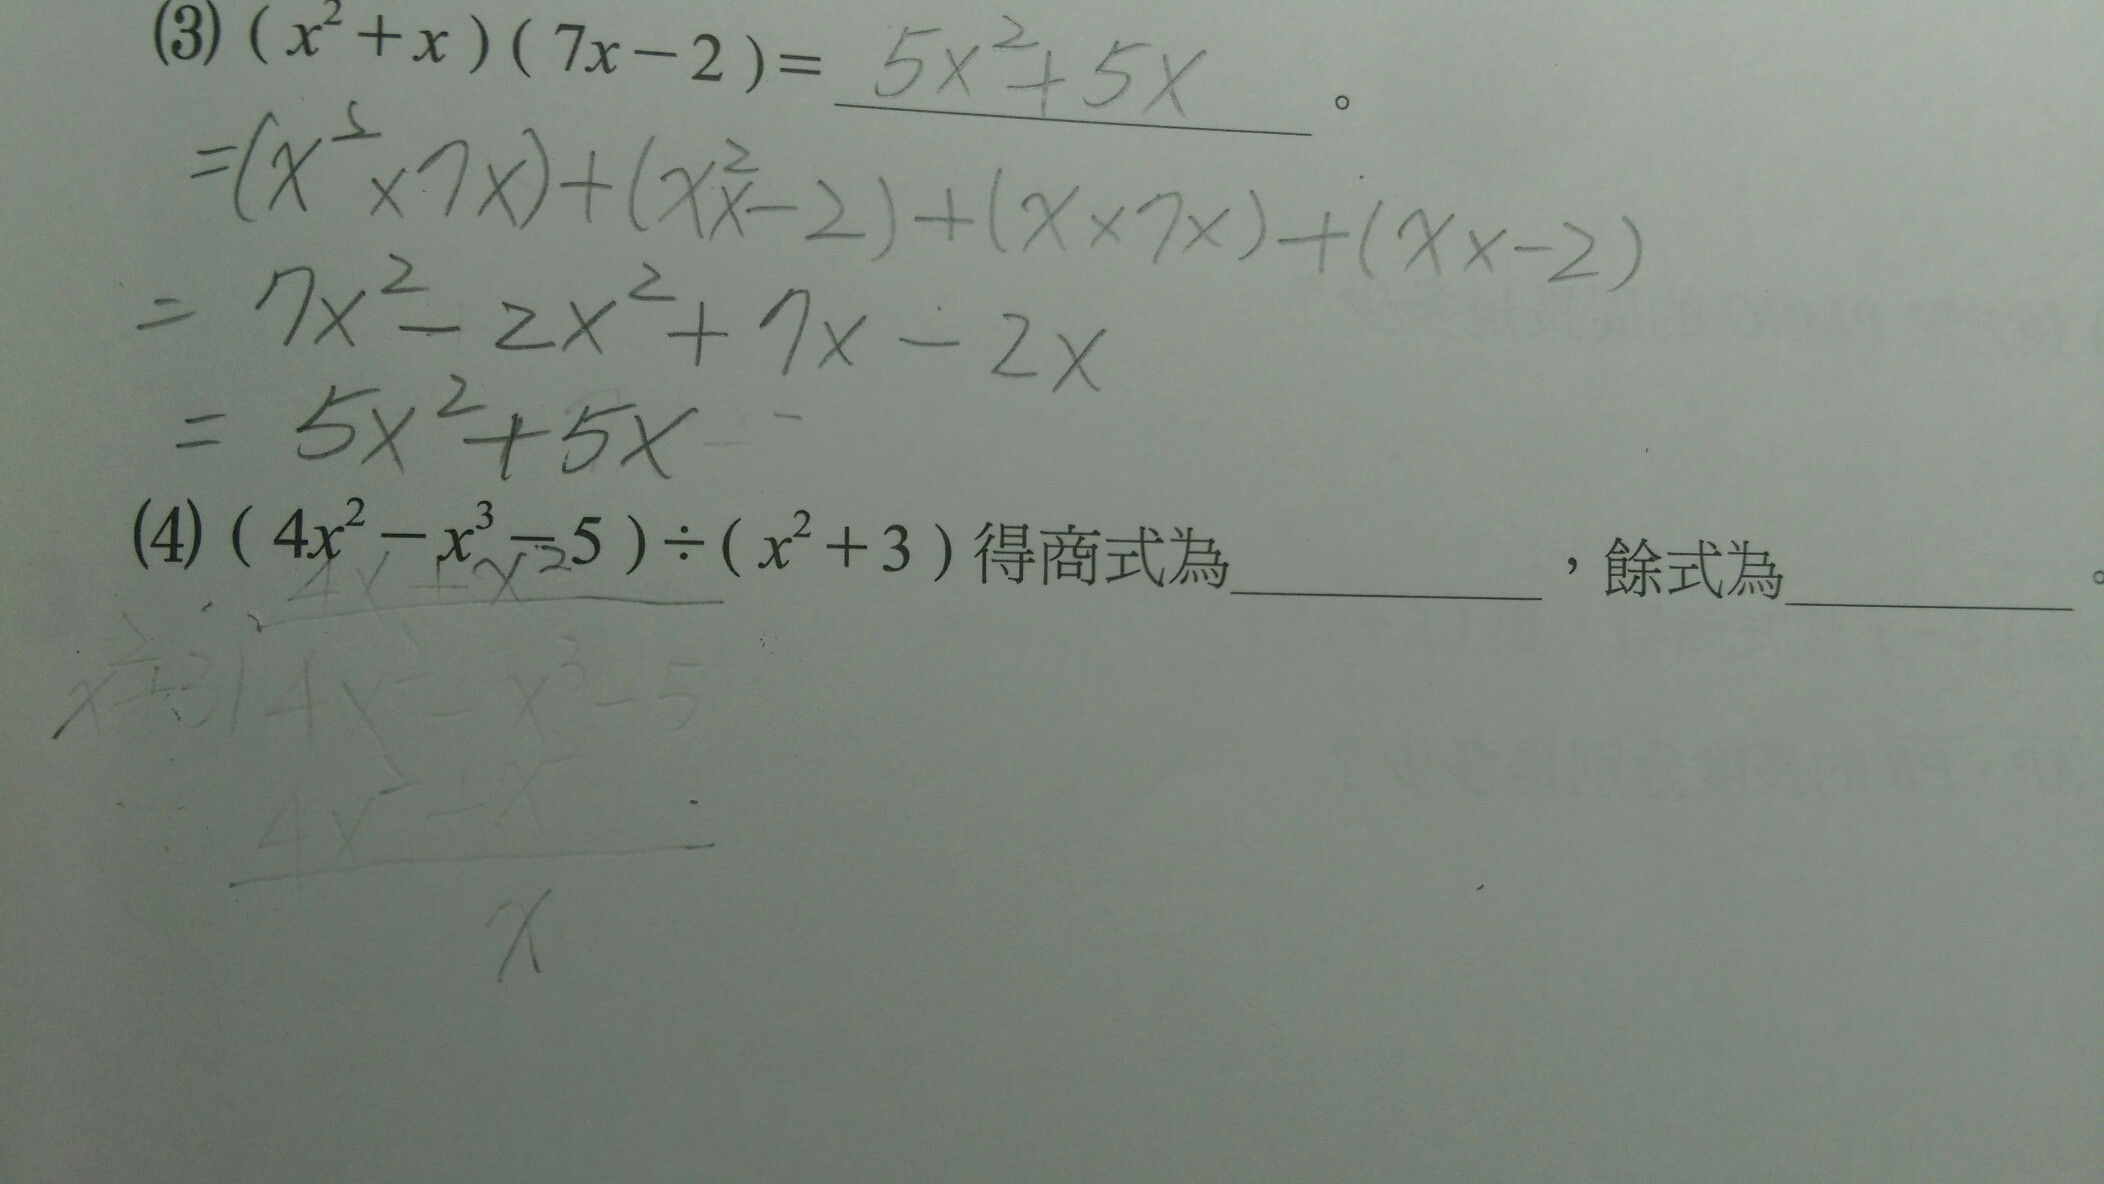 (3) ( x² + x ) ( 7x − 2 ) = 5x² + 5x 。
= (x² × 7x) + (x² × −2) + (x × 7x) + (x × −2)
= 7x² − 2x² + 7x − 2x
= 5x² + 5x
(4) ( 4x² − x³ − 5 ) ÷ ( x² + 3 ) 得商式為 ，餘式為 。
4x + x²
x² + 3 ) 4x² − x³ − 5
4x² + x
x